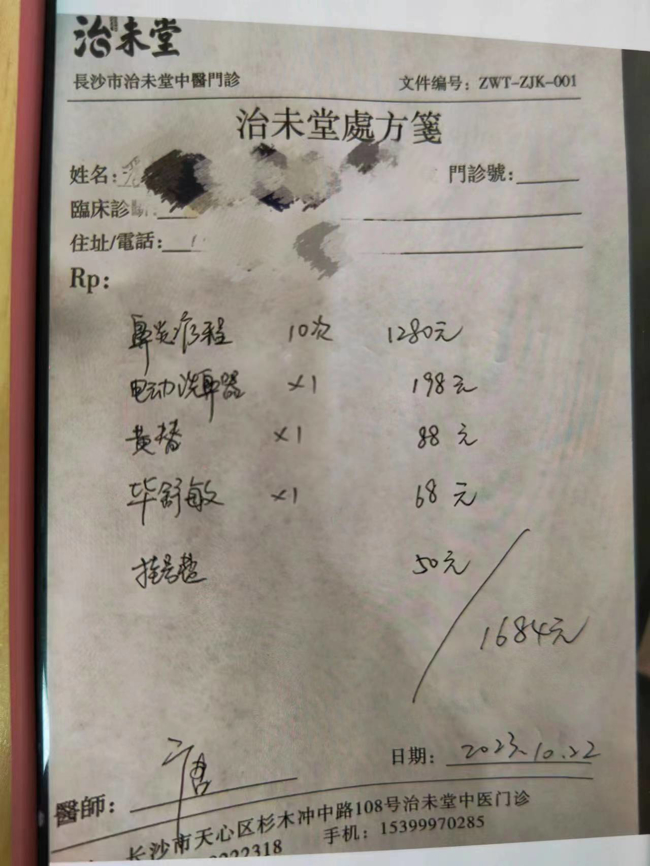 治未堂
長沙市治未堂中醫門診 文件编号：ZWT-ZJK-001
治未堂處方箋
姓名： 門診號：
臨床診斷
住址/電話：
Rp:
鼻炎疗程 10次 1280元
电动洗鼻器 ×1 198元
黄精 ×1 88元
毕舒敏 ×1 68元
挂号费 50元
1684元
日期： 2023.10.22
醫師： 唐
长沙市天心区杉木冲中路108号治未堂中医门诊
222318 手机：15399970285